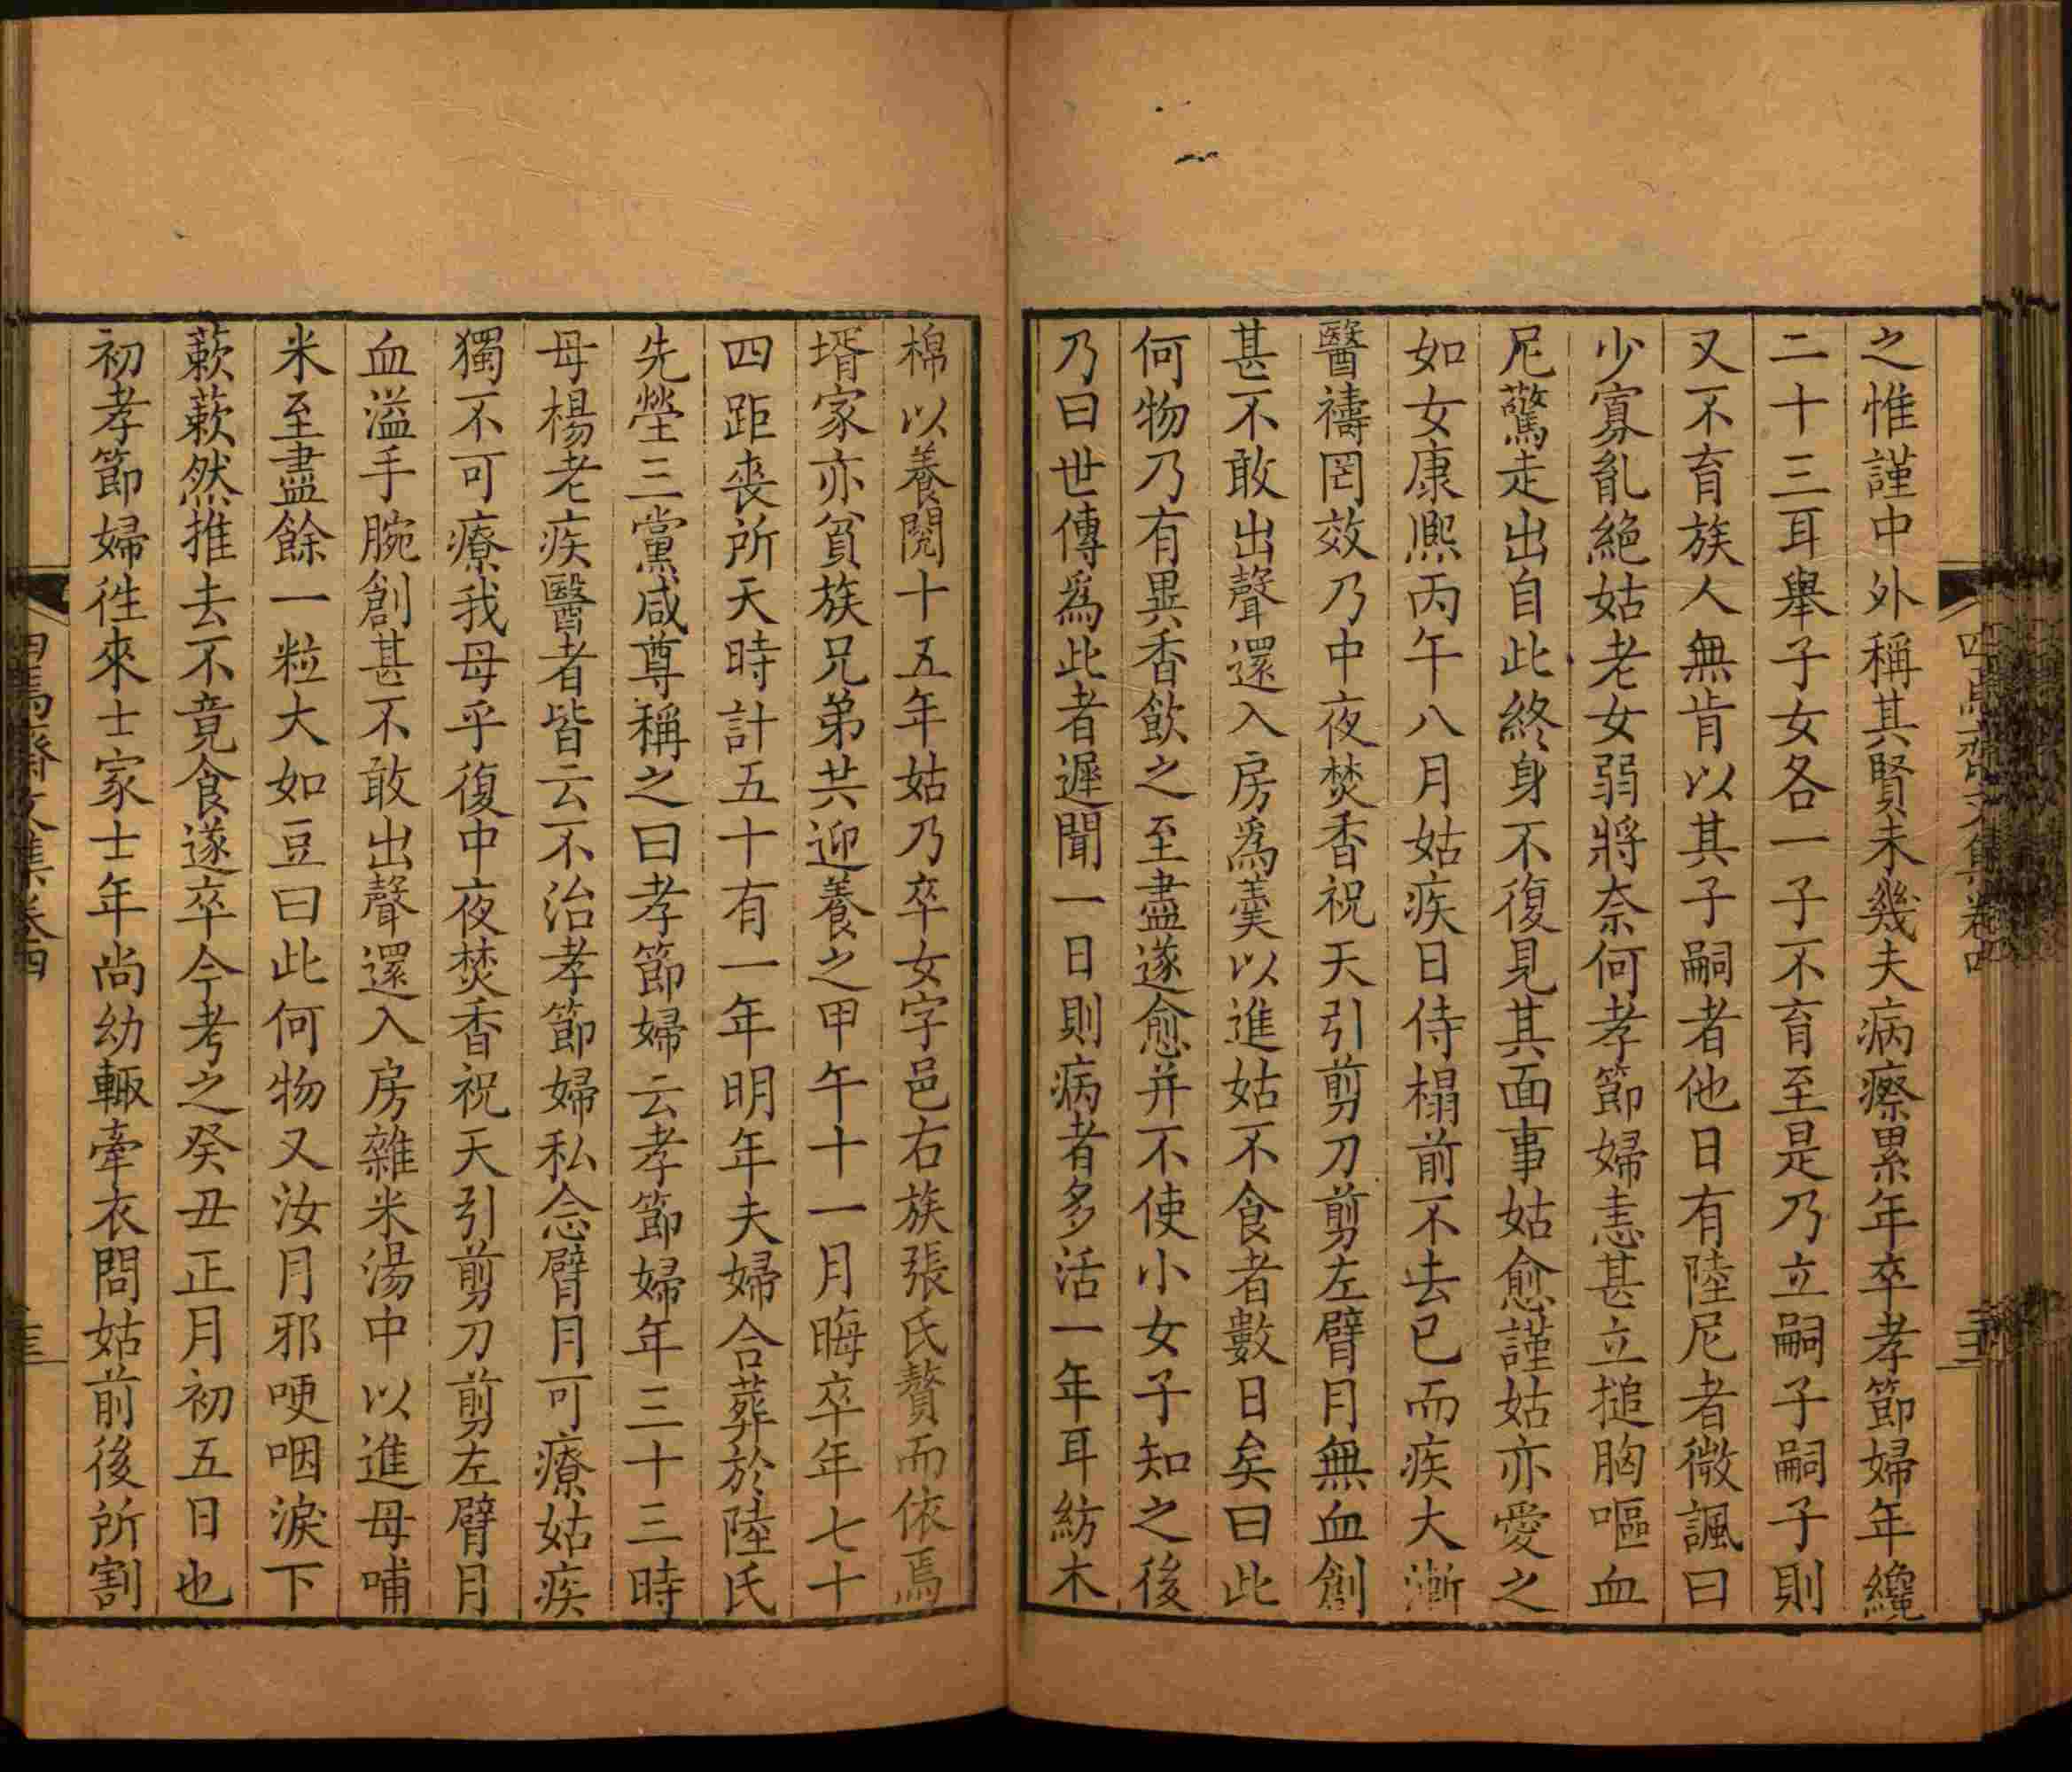 之惟謹中外稱其賢未幾夫病瘵累年卒孝節婦年纔
二十三耳舉子女各一子不育至是乃立嗣子嗣子則
又不育族人無肯以其子嗣者他日有陸尼者微諷曰
少寡亂絶姑老女弱將奈何孝節婦恚甚立搥胸嘔血
尼驚走出自此終身不復見其面事姑愈謹姑亦愛之
如女康熈丙午八月姑疾日侍榻前不去已而疾大漸
醫禱罔效乃中夜焚香祝天引剪刀剪左臂月無血創
甚不敢出聲還入房爲羹以進姑不食者數日矣曰此
何物乃有異香飲之至盡遂愈并不使小女子知之後
乃曰世傳爲此者遲聞一日則病者多活一年耳紡木
棉以養閱十五年姑乃卒女字邑右族張氏贅而依焉
壻家亦貧族兄弟共迎養之甲午十一月晦卒年七十
四距喪所天時計五十有一年明年夫婦合葬於陸氏
先塋三黨咸尊稱之曰孝節婦云孝節婦年三十三時
母楊老疾醫者皆云不治孝節婦私念臂月可療姑疾
獨不可療我母乎復中夜焚香祝天引剪刀剪左臂月
血溢手腕創甚不敢出聲還入房雜米湯中以進母哺
米至盡餘一粒大如豆曰此何物又汝月邪哽咽淚下
蔌蔌然推去不竟食遂卒今考之癸丑正月初五日也
初孝節婦徃來士家士年尚幼輙牽衣問姑前後所割
文集卷四